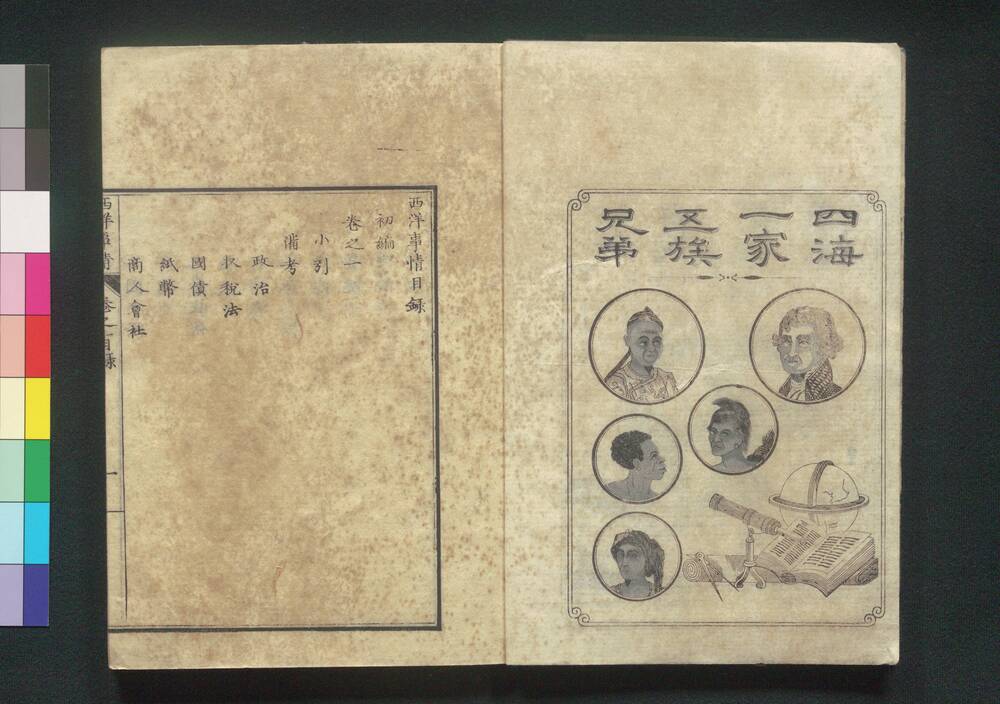 四海
一家
五族
兄弟
西洋事情目録
初編
卷之一
小引
備考
政治
收税法
國債
紙幣
商人會社
西洋事情 卷之一目録 一